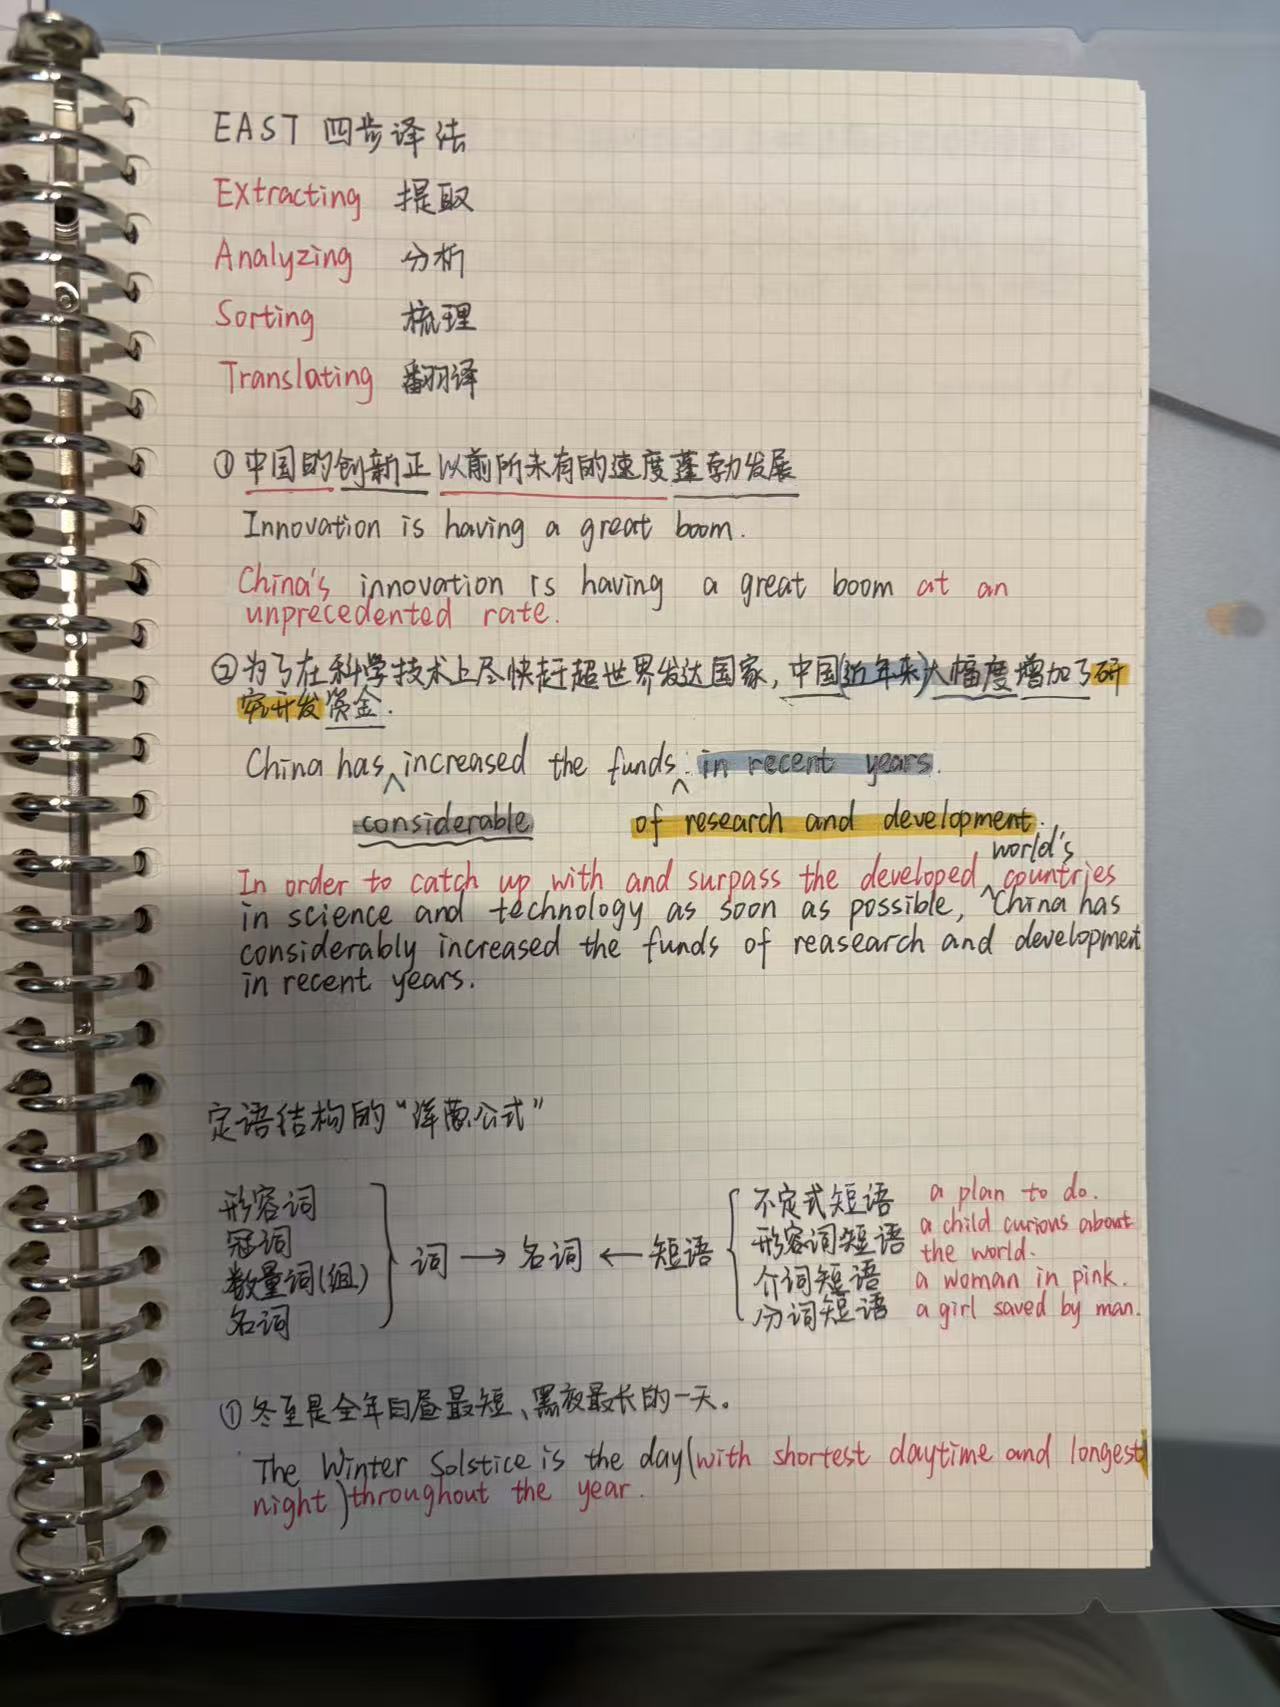 EAST 四步译法
Extracting 提取
Analyzing 分析
Sorting 梳理
Translating 翻译
①中国的创新正以前所未有的速度蓬勃发展
Innovation is having a great boom.
China's innovation is having a great boom at an
unprecedented rate.
②为了在科学技术上尽快赶超世界发达国家,中国(近年来)大幅度增加了研
究开发资金.
China has ^ increased the funds ^. in recent years.
considerable of research and development.
world's
In order to catch up with and surpass the developed ^ countries
in science and technology as soon as possible, China has
considerably increased the funds of reasearch and development
in recent years.
定语结构的“洋葱公式”
形容词
冠词
数量词(组)
名词
词 → 名词 ← 短语
不定式短语 a plan to do.
形容词短语 a child curious about
the world.
介词短语 a woman in pink.
分词短语 a girl saved by man.
①冬至是全年白昼最短、黑夜最长的一天。
The Winter Solstice is the day(with shortest daytime and longest
night)throughout the year.